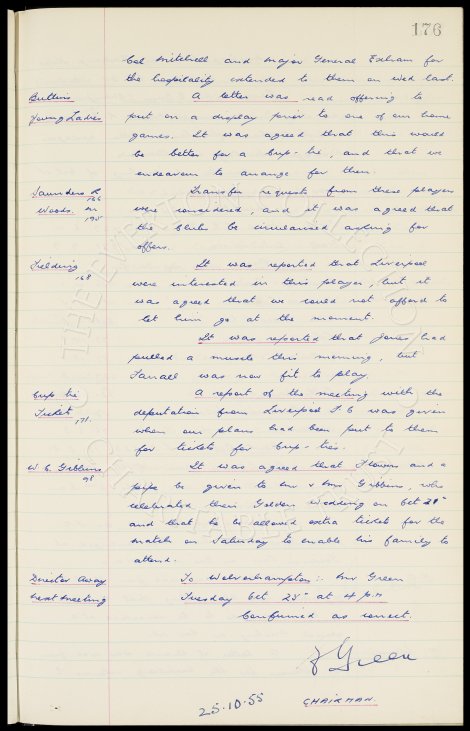 176
Col Mitchell and Major General Exham for
the hospitality extended to them on Wed last.
Butlins
Young Ladies
A letter was read offering to
put on a display prior to one of our home
games. It was agreed that this would
be better for a Cup-tie, and that we
endeavour to arrange for them.
Saunders R 166
Woods M 195
Transfer requests from these players
were considered, and it was agreed that
the Clubs be circularised asking for
offers.
Fielding 168
It was reported that Liverpool
were interested in this player, but it
was agreed that we could not afford to
let him go at the moment.
It was reported that Jones had
pulled a muscle this morning, but
Farrall was now fit to play.
Cup tie
Ticket 171.
A report of the meeting with the
deputation from Liverpool F C was given
when our plans had been put to them
for tickets for Cup-ties.
W. C. Gibbins 98
It was agreed that Flowers and a
pipe be given to Mr & Mrs. Gibbins, who
celebrated their Golden Wedding on Oct 28th
and that he be allowed extra tickets for the
match on Saturday to enable his family to
attend.
Director Away
To Wolverhampton:- Mr Green
Next Meeting
Tuesday Oct 25th at 4 p.m
Confirmed as correct.
Green
25.10.55
CHAIRMAN
THE EVERTON COLLECTION